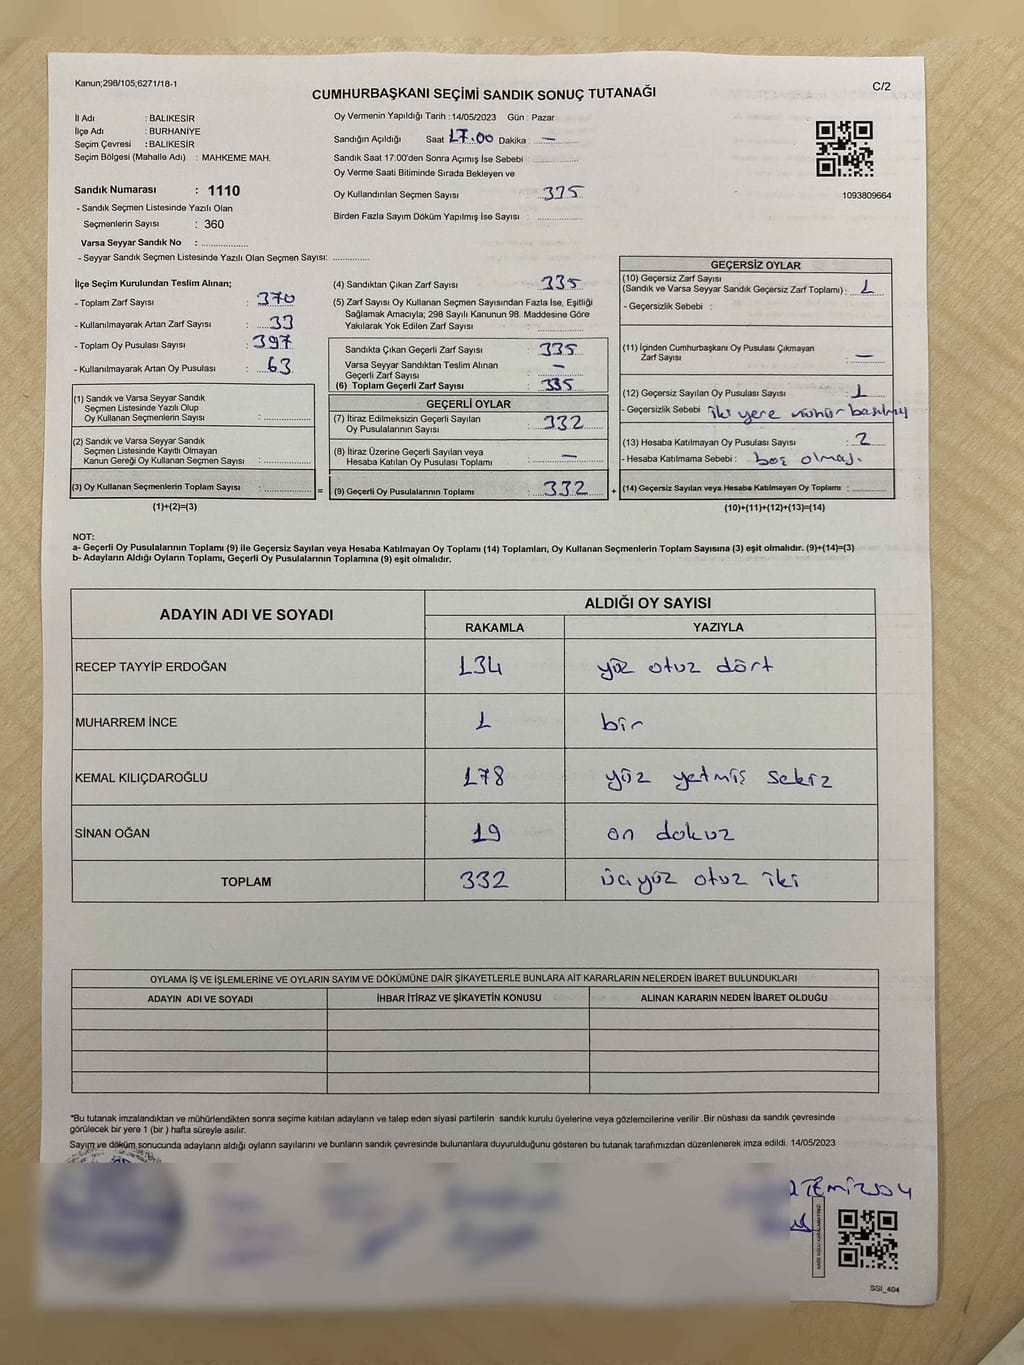 Kanun;298/105;6271/18-1
C/2
CUMHURBAŞKANI SEÇİMİ SANDIK SONUÇ TUTANAĞI
İl Adı : BALIKESİR
İlçe Adı : BURHANİYE
Seçim Çevresi : BALIKESİR
Seçim Bölgesi (Mahalle Adı) : MAHKEME MAH.
Sandık Numarası : 1110
- Sandık Seçmen Listesinde Yazılı Olan
Seçmenlerin Sayısı : 360
Varsa Seyyar Sandık No : ................
- Seyyar Sandık Seçmen Listesinde Yazılı Olan Seçmen Sayısı: ............
Oy Vermenin Yapıldığı Tarih : 14/05/2023 Gün : Pazar
Sandığın Açıldığı Saat 17.00 Dakika : —
Sandık Saat 17:00'den Sonra Açımış İse Sebebi ...............
Oy Verme Saati Bitiminde Sırada Bekleyen ve
Oy Kullandırılan Seçmen Sayısı : 335
Birden Fazla Sayım Döküm Yapılmış İse Sayısı : ...............
1093809664
İlçe Seçim Kurulundan Teslim Alınan;
- Toplam Zarf Sayısı : 370
- Kullanılmayarak Artan Zarf Sayısı : 33
- Toplam Oy Pusulası Sayısı : 397
- Kullanılmayarak Artan Oy Pusulası : 63
(1) Sandık ve Varsa Seyyar Sandık
Seçmen Listesinde Yazılı Olup
Oy Kullanan Seçmenlerin Sayısı : ...............
(2) Sandık ve Varsa Seyyar Sandık
Seçmen Listesinde Kayıtlı Olmayan
Kanun Gereği Oy Kullanan Seçmen Sayısı : ...............
(3) Oy Kullanan Seçmenlerin Toplam Sayısı : ............... =
(1)+(2)=(3)
(4) Sandıktan Çıkan Zarf Sayısı : 335
(5) Zarf Sayısı Oy Kullanan Seçmen Sayısından Fazla İse, Eşitliği
Sağlamak Amacıyla; 298 Sayılı Kanunun 98. Maddesine Göre
Yakılarak Yok Edilen Zarf Sayısı : ...............
Sandıkta Çıkan Geçerli Zarf Sayısı : 335
Varsa Seyyar Sandıktan Teslim Alınan
Geçerli Zarf Sayısı : —
(6) Toplam Geçerli Zarf Sayısı : 335
GEÇERLİ OYLAR
(7) İtiraz Edilmeksizin Geçerli Sayılan
Oy Pusulalarının Sayısı : 332
(8) İtiraz Üzerine Geçerli Sayılan veya
Hesaba Katılan Oy Pusulası Toplamı : —
(9) Geçerli Oy Pusulalarının Toplamı : 332 +
GEÇERSİZ OYLAR
(10) Geçersiz Zarf Sayısı
(Sandık ve Varsa Seyyar Sandık Geçersiz Zarf Toplamı) : 1
- Geçersizlik Sebebi :
(11) İçinden Cumhurbaşkanı Oy Pusulası Çıkmayan
Zarf Sayısı : —
(12) Geçersiz Sayılan Oy Pusulası Sayısı : 1
- Geçersizlik Sebebi : iki yere mühür basılmış
(13) Hesaba Katılmayan Oy Pusulası Sayısı : 2
- Hesaba Katılmama Sebebi : boş olması.
(14) Geçersiz Sayılan veya Hesaba Katılmayan Oy Toplamı : ............
(10)+(11)+(12)+(13)=(14)
NOT:
a- Geçerli Oy Pusulalarının Toplamı (9) ile Geçersiz Sayılan veya Hesaba Katılmayan Oy Toplamı (14) Toplamları, Oy Kullanan Seçmenlerin Toplam Sayısına (3) eşit olmalıdır. (9)+(14)=(3)
b- Adayların Aldığı Oyların Toplamı, Geçerli Oy Pusulalarının Toplamına (9) eşit olmalıdır.
ADAYIN ADI VE SOYADI
ALDIĞI OY SAYISI
RAKAMLA YAZIYLA
RECEP TAYYİP ERDOĞAN 134 yüz otuz dört
MUHARREM İNCE 1 bir
KEMAL KILIÇDAROĞLU 178 yüz yetmiş sekiz
SİNAN OĞAN 19 on dokuz
TOPLAM 332 üçyüz otuz iki
OYLAMA İŞ VE İŞLEMLERİNE VE OYLARIN SAYIM VE DÖKÜMÜNE DAİR ŞİKAYETLERLE BUNLARA AİT KARARLARIN NELERDEN İBARET BULUNDUKLARI
ADAYIN ADI VE SOYADI İHBAR İTİRAZ VE ŞİKAYETİN KONUSU ALINAN KARARIN NEDEN İBARET OLDUĞU
*Bu tutanak imzalandıktan ve mühürlendikten sonra seçime katılan adayların ve talep eden siyasi partilerin sandık kurulu üyelerine veya gözlemcilerine verilir .Bir nüshası da sandık çevresinde
görülecek bir yere 1 (bir ) hafta süreyle asılır.
Sayım ve döküm sonucunda adayların aldığı oyların sayılarını ve bunların sandık çevresinde bulunanlara duyurulduğunu gösteren bu tutanak tarafımızdan düzenlenerek imza edildi. 14/05/2023
SSI_404